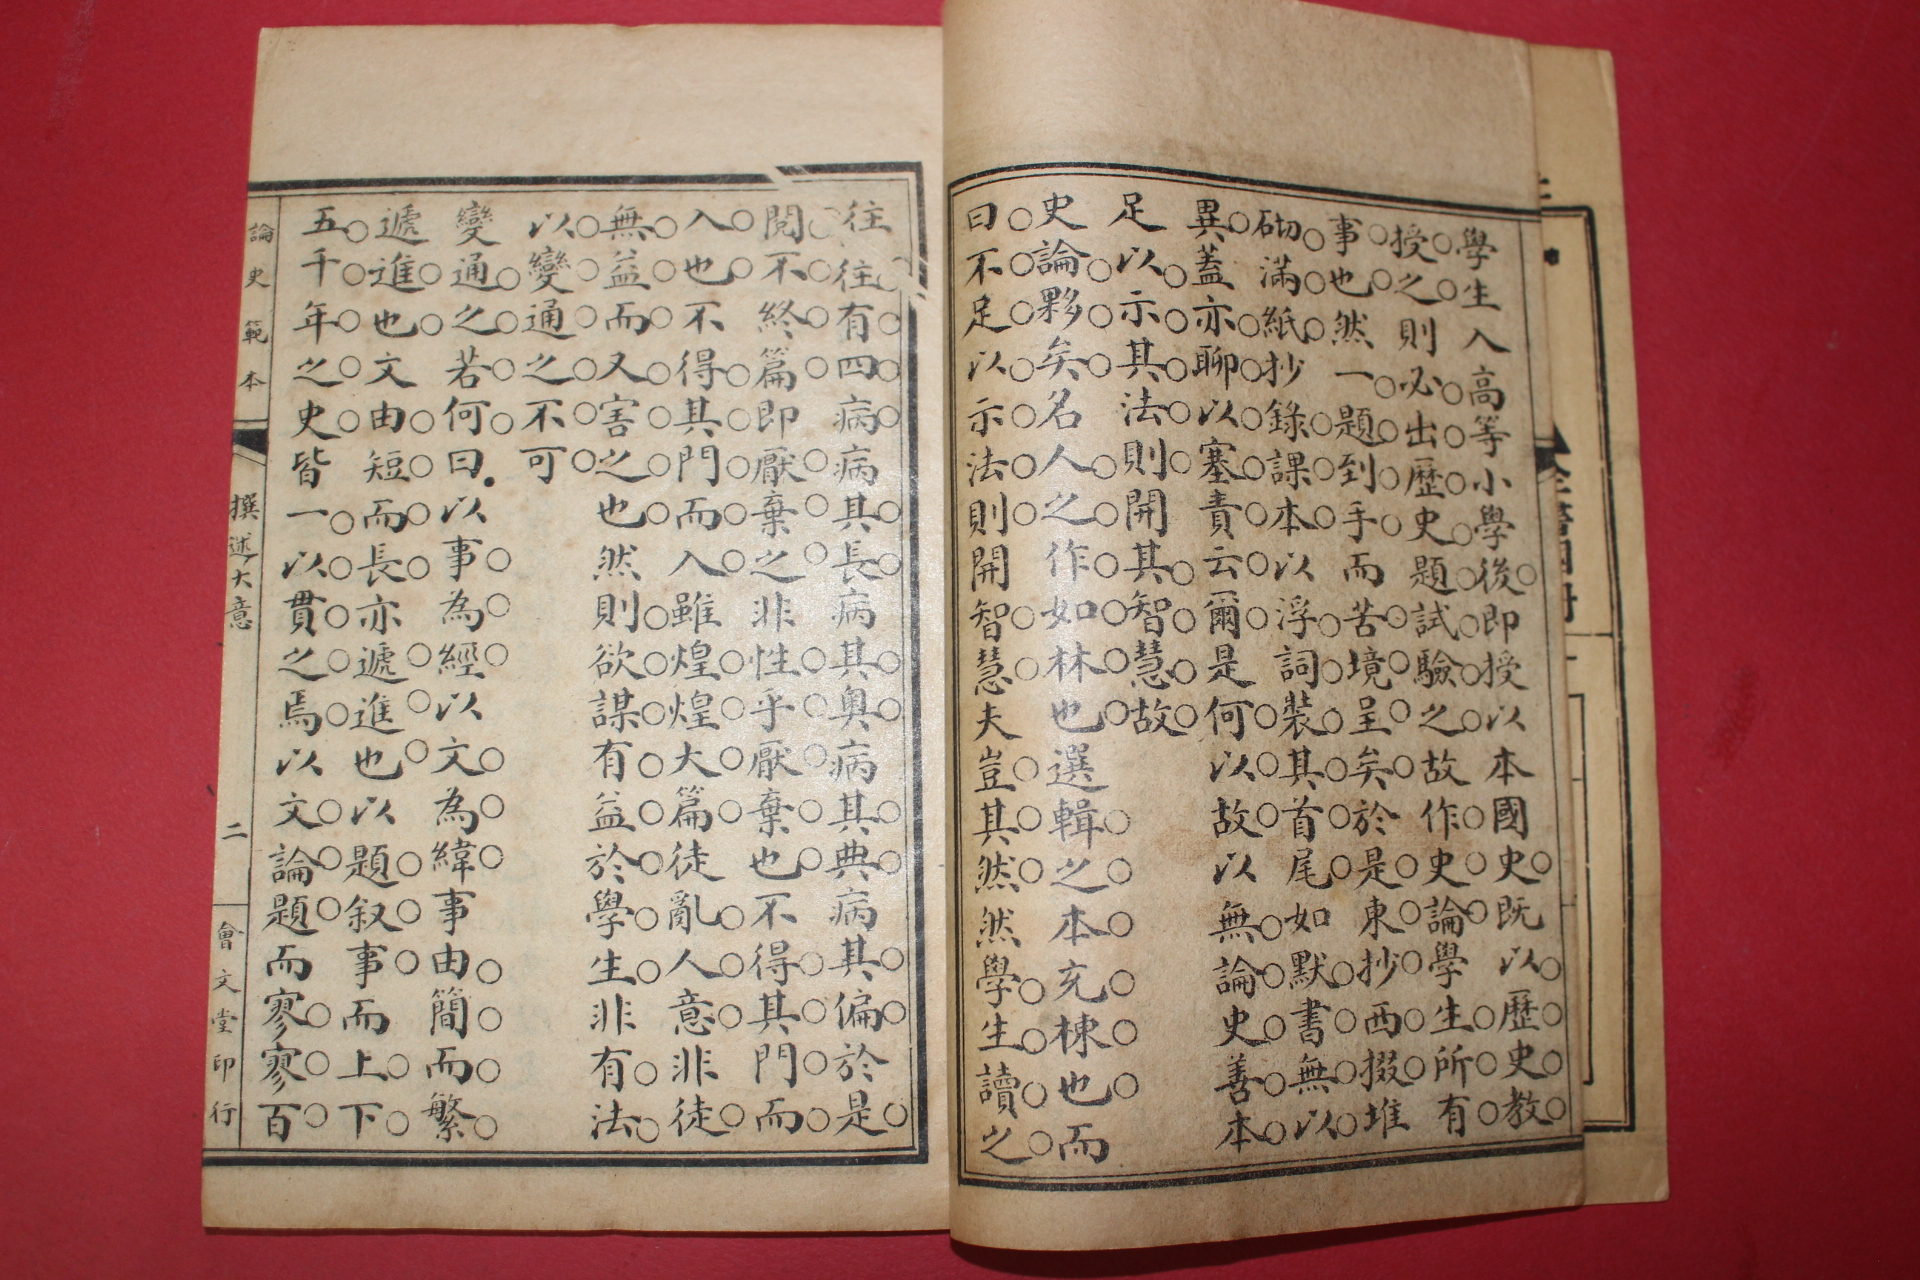 學生入高等小學後即授以本國史既以歷史教
授之則必出歷史題試驗之故作史論學生所有
事也然一題到手而苦境呈矣於是東抄西掇堆
砌滿紙抄錄課本以浮詞裝其首尾如默書無以
異蓋亦聊以塞責云爾是何以故以無論史善本
足以示其法則開其智慧故
史論夥矣名人之作如林也選輯之本充棟也而
曰不足以示法則開智慧夫豈其然然學生讀之
往往有四病病其長病其奧病其典病其偏於是
閱不終篇即厭棄之非性乎厭棄也不得其門而
入也不得其門而入雖煌煌大篇徒亂人意非徒
無益而又害之也然則欲謀有益於學生非有法
以變通之不可
變通之若何曰以事為經以文為緯事由簡而繁
遞進也文由短而長亦遞進也以題叙事而上下
五千年之史皆一以貫之焉以文論題而寥寥百
論史範本 撰述大意 二 會文堂印行